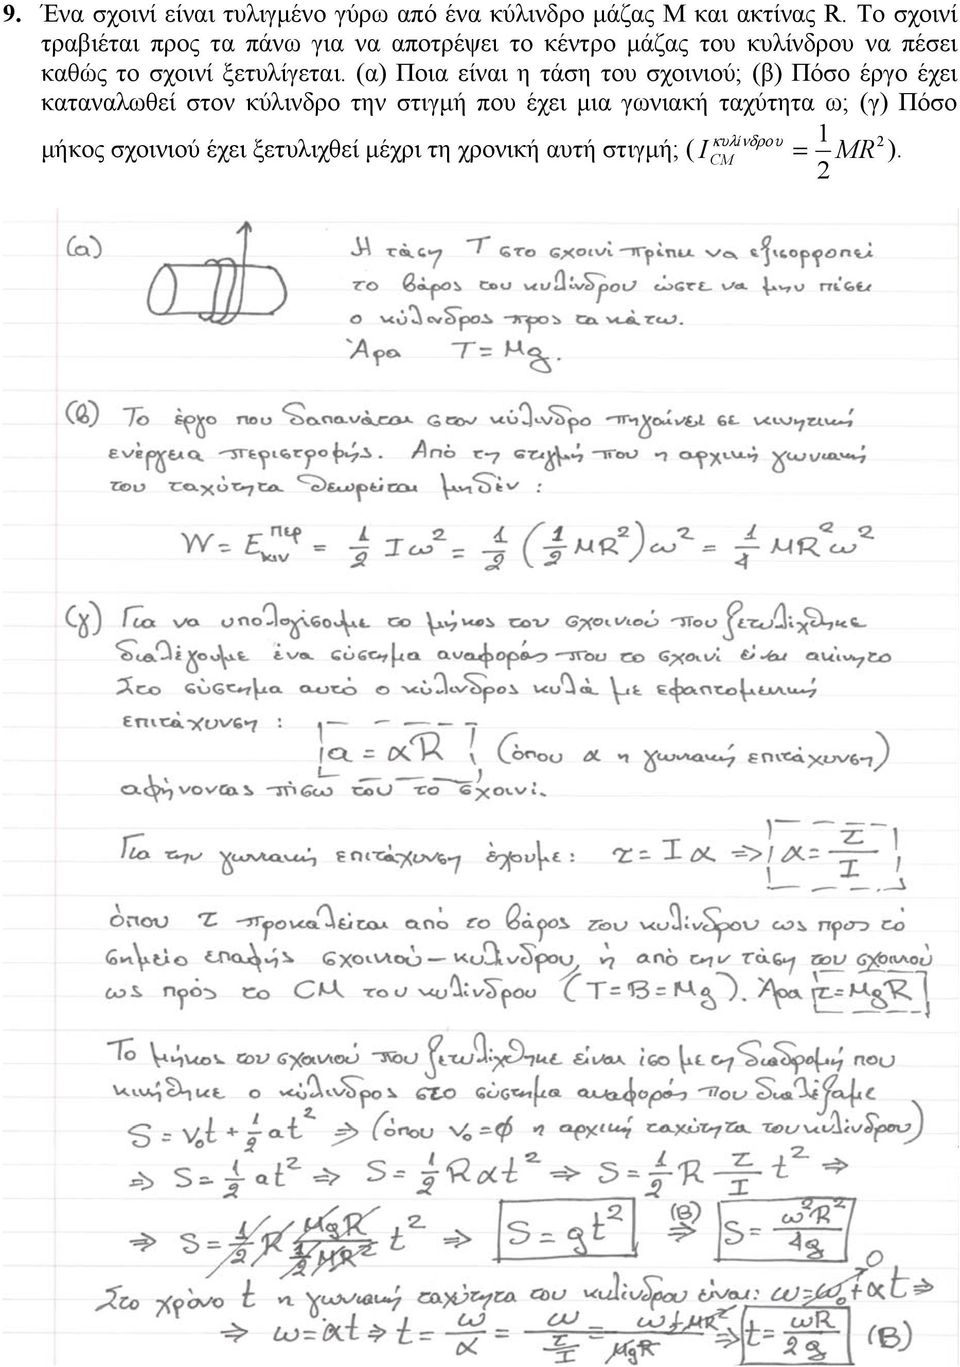 9. Ένα σχοινί είναι τυλιγμένο γύρω από ένα κύλινδρο μάζας Μ και ακτίνας R. Το σχοινί
τραβιέται προς τα πάνω για να αποτρέψει το κέντρο μάζας του κυλίνδρου να πέσει
καθώς το σχοινί ξετυλίγεται. (α) Ποια είναι η τάση του σχοινιού; (β) Πόσο έργο έχει
καταναλωθεί στον κύλινδρο την στιγμή που έχει μια γωνιακή ταχύτητα ω; (γ) Πόσο
μήκος σχοινιού έχει ξετυλιχθεί μέχρι τη χρονική αυτή στιγμή; (I_{CM}^{κυλίνδρου} = 1/2 MR²).
(α) Η τάση T στο σχοινί πρέπει να εξισορροπεί
το βάρος του κυλίνδρου ώστε να μην πέσει
ο κύλινδρος προς τα κάτω.
Άρα T = Mg.
(β) Το έργο που δαπανάται στον κύλινδρο πηγαίνει σε κινητική
ενέργεια περιστροφής. Από τη στιγμή που η αρχική γωνιακή
του ταχύτητα θεωρείται μηδέν :
W = E_{κιν}^{περ} = 1/2 Iω² = 1/2 (1/2 MR²)ω² = 1/4 MR²ω²
(γ) Για να υπολογίσουμε το μήκος του σχοινιού που ξετυλίχθηκε
διαλέγουμε ένα σύστημα αναφοράς που το σχοινί είναι ακίνητο
Στο σύστημα αυτό ο κύλινδρος κυλά με εφαπτομενική
επιτάχυνση : a = αR (όπου α η γωνιακή επιτάχυνση)
αφήνοντας πίσω του το σχοινί.
Για την γωνιακή επιτάχυνση έχουμε: τ = Iα ⇒ α = τ/I
όπου τ προκαλείται από το βάρος του κυλίνδρου ως προς το
σημείο επαφής σχοινιού-κυλίνδρου, ή από την τάση του σχοινιού
ως προς το CM του κυλίνδρου (T = B = Mg). Άρα τ = MgR
Το μήκος του σχοινιού που ξετυλίχθηκε είναι ίσο με τη διαδρομή που
κινήθηκε ο κύλινδρος στο σύστημα αναφοράς που διαλέξαμε
S = v₀t + 1/2 at² ⇒ (όπου v₀ = 0 η αρχική ταχύτητα του κυλίνδρου)
⇒ S = 1/2 at² ⇒ S = 1/2 Rαt² ⇒ S = 1/2 R τ/I t² ⇒
⇒ S = 1/2 R MgR/(1/2 MR²) t² ⇒ S = gt² ⇒(B) S = ω²R²/4g
Στο χρόνο t η γωνιακή ταχύτητα του κυλίνδρου είναι: ω = ω₀ + αt ⇒ 0
⇒ ω = αt ⇒ t = ω/α = ω/(τ/I) = ω 1/2 MR²/MgR ⇒ t = ωR/2g (B)